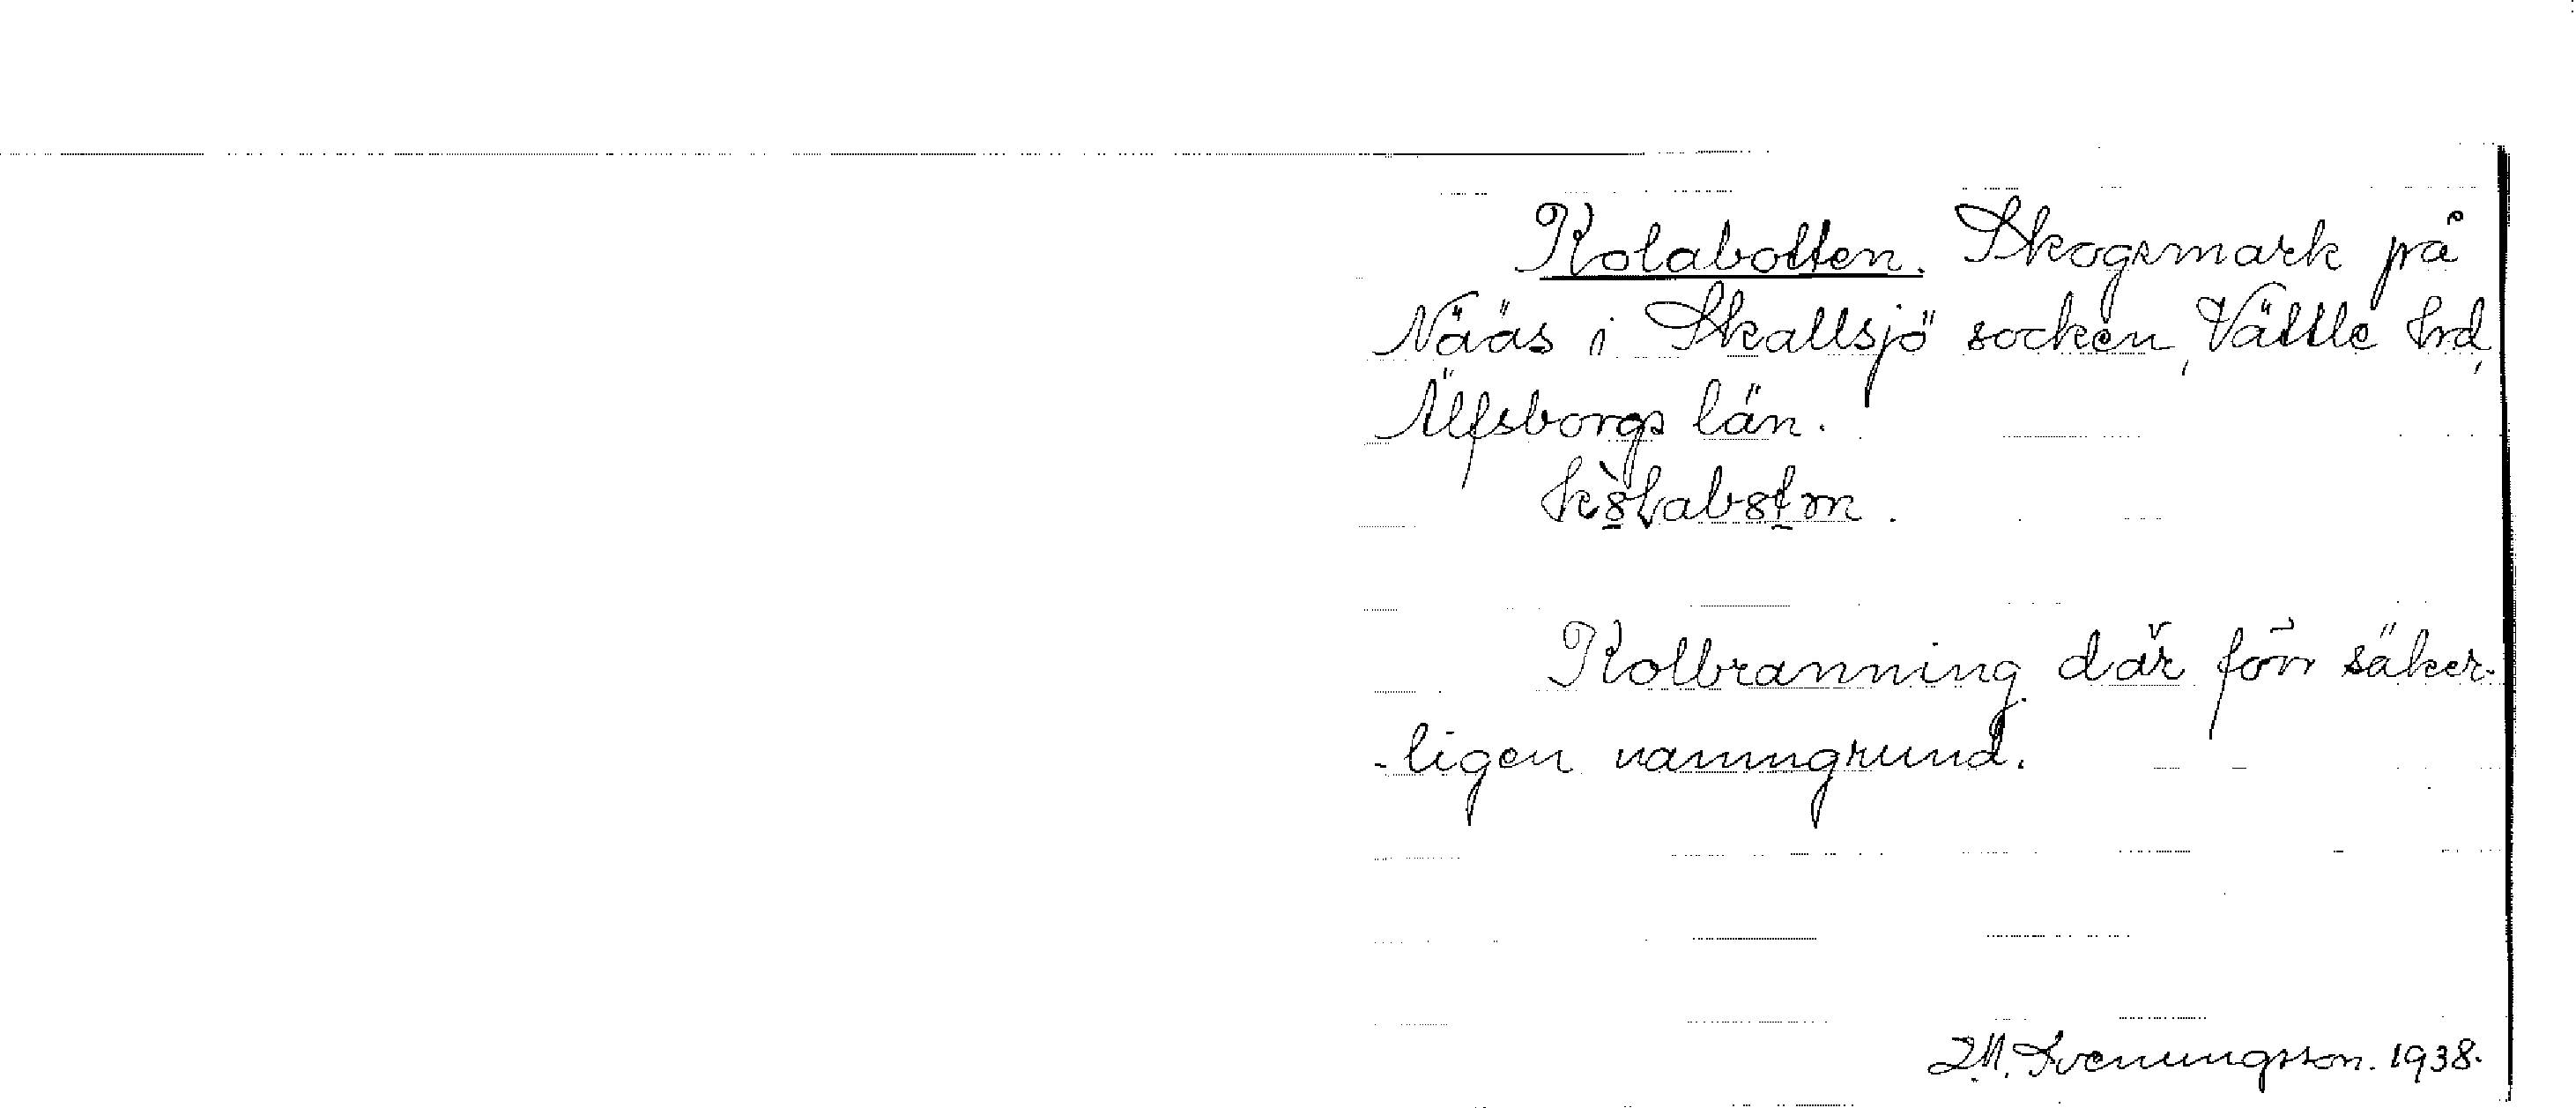 Kolabotten. Skogsmark på
Nääs i Skallsjö socken, Vättle hrd,
Älfsborgs län.
Kolbränning där förr säker-
-ligen namngrund.
M. Svenungsson. 1938.